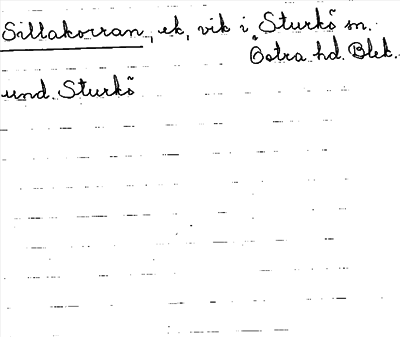 Sillakorran, ek, vik i Sturkö sn.
Östra hd. Blek.
und. Sturkö